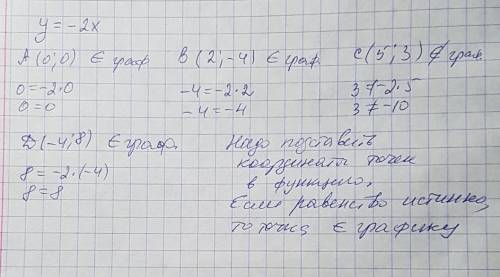 y = -2x
A (0; 0) ∈ граф
0 = -2·0
0 = 0
B (2; -4) ∈ граф.
-4 = -2·2
-4 = -4
C (5; 3) ∉ граф.
3 ≠ -2·5
3 ≠ -10
D (-4; 8) ∈ граф.
8 = -2·(-4)
8 = 8
Надо подставить
координаты точек
в функцию,
Если равенство истинно,
то точка ∈ графику